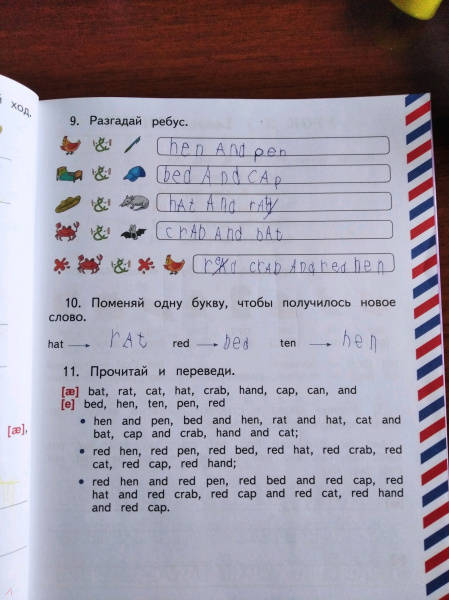 ход.
9. Разгадай ребус.
& hen And pen
& bed And CAp
& hAt And rAt
& crAb And bAt
& red crAb And red hen
10. Поменяй одну букву, чтобы получилось новое
слово.
hat → rAt red → bed ten → hen
11. Прочитай и переведи.
[æ] bat, rat, cat, hat, crab, hand, cap, can, and
[e] bed, hen, ten, pen, red
[æ],
• hen and pen, bed and hen, rat and hat, cat and
bat, cap and crab, hand and cat;
• red hen, red pen, red bed, red hat, red crab, red
cat, red cap, red hand;
• red hen and red pen, red bed and red cap, red
hat and red crab, red cap and red cat, red hand
and red cap.